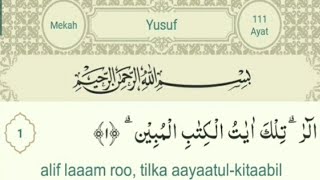 Mekah
Yusuf
111
Ayat
بِسْمِ اللّٰهِ الرَّحْمٰنِ الرَّحِيْمِ
1
الۤرٰ ۗ تِلْكَ اٰيٰتُ الْكِتٰبِ الْمُبِيْنِ ۗ ﴿١﴾
alif laaam roo, tilka aayaatul-kitaabil